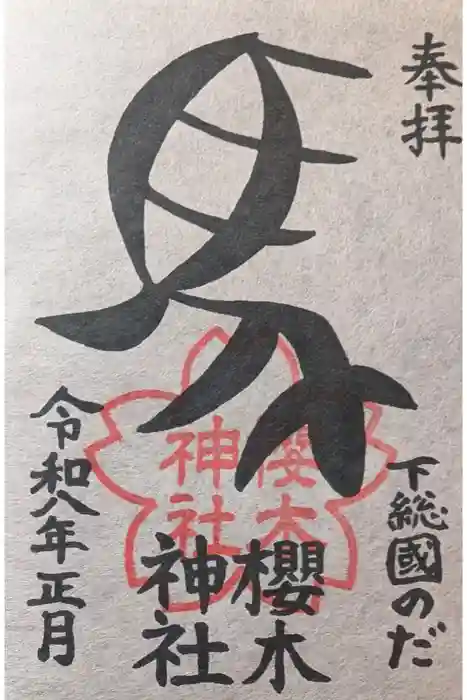 奉拝
馬
下総國のだ
櫻木
神社
櫻木
神社
令和八年正月